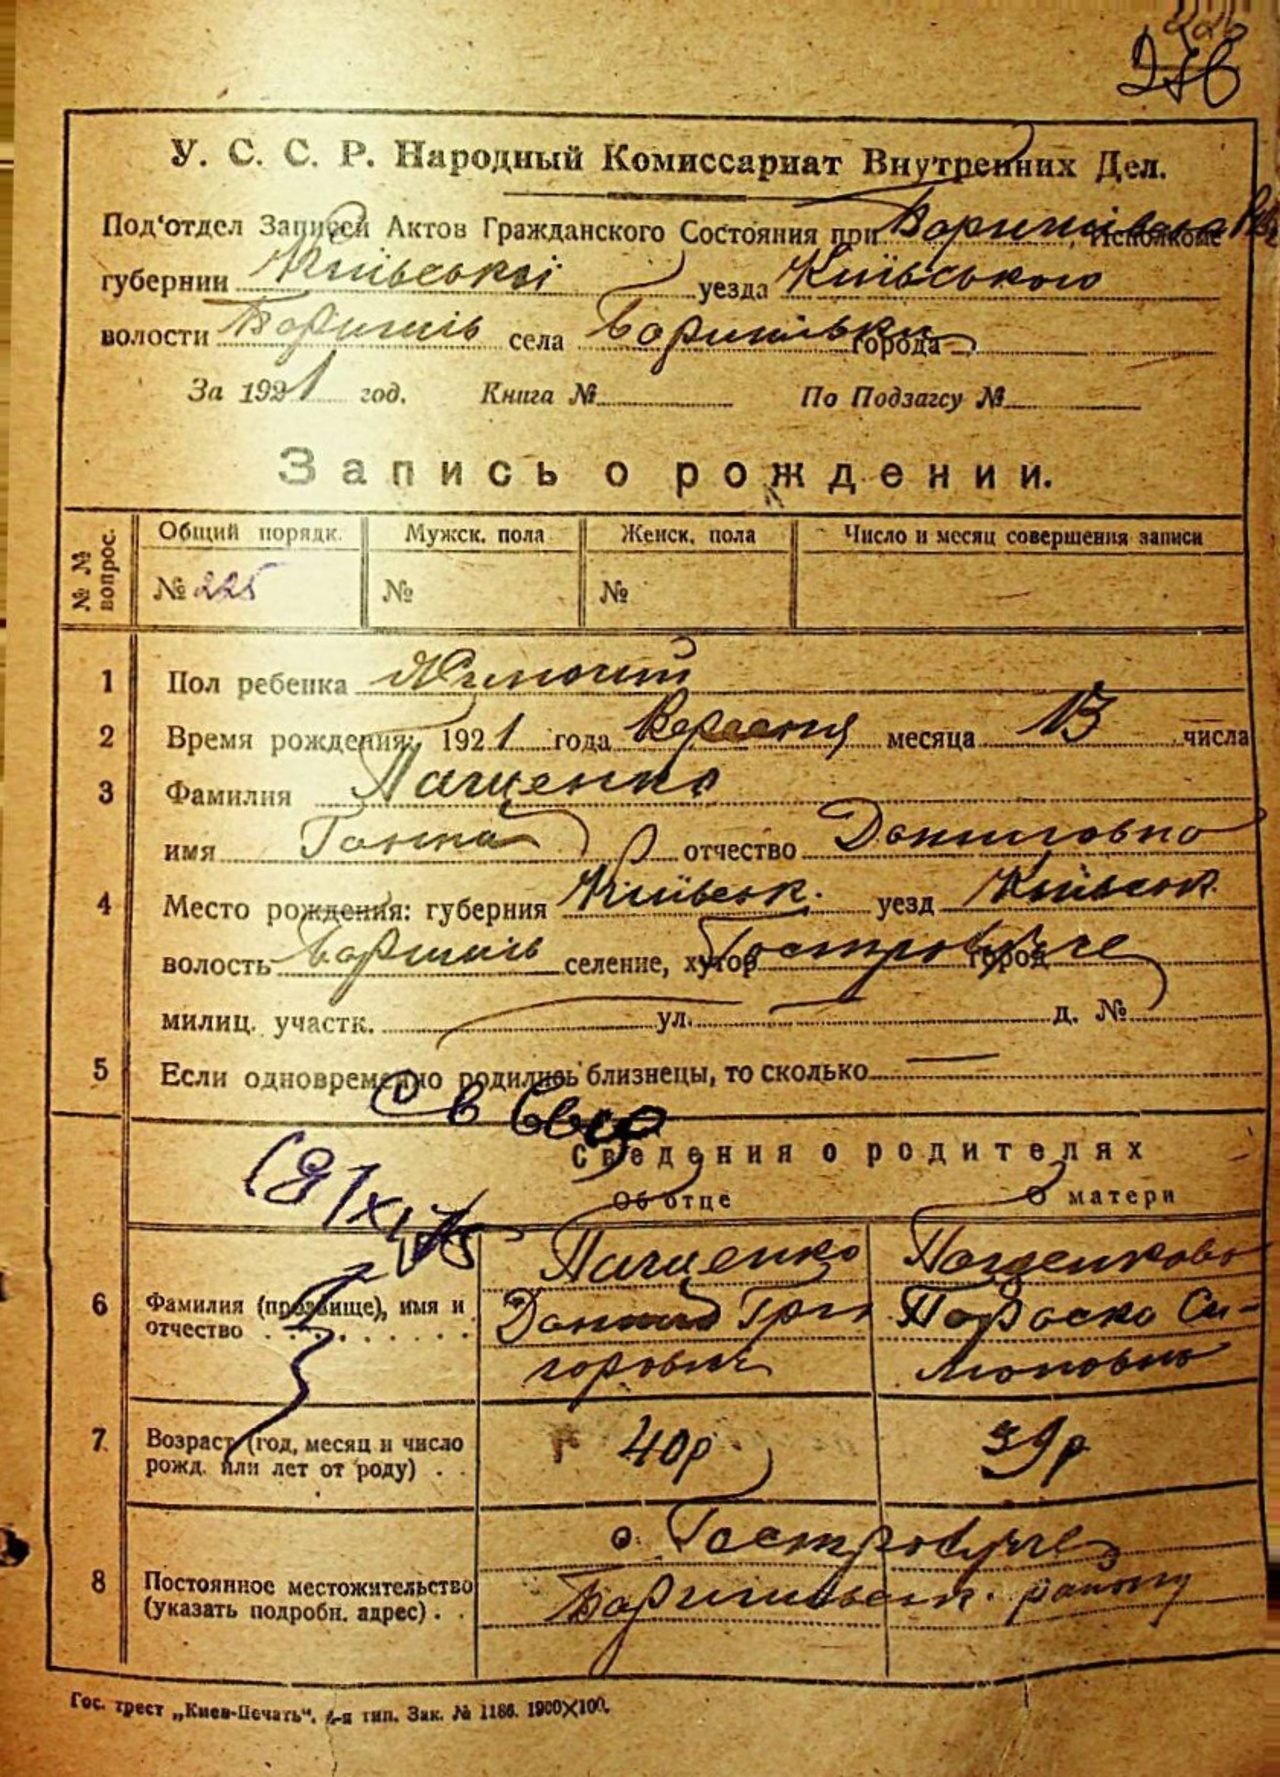 276
У. С. С. Р. Народный Комиссариат Внутренних Дел.
Под'отдел Записей Актов Гражданского Состояния при Исполкоме
губернии Київської уезда Київського
волости Бориспіль села города
За 1921 год. Книга № По Подзагсу №
Запись о рождении.
№№ вопрос. Общий порядк. Мужск. пола Женск. пола Число и месяц совершения записи
№ 225 № №
1 Пол ребенка Жиночий
2 Время рождения: 1921 года Вересня месяца 13 числа
3 Фамилия Пащенко
имя Ганна отчество Даниловна
4 Место рождения: губерния Київськ. уезд Київськ.
волость Бориспіль селение, хутор город
милиц. участк. ул. д. №
5 Если одновременно родились близнецы, то сколько —
Сведения о родителях
Об отце О матери
6 Фамилия (прозвище), имя и отчество
Пащенко Данило Григорович
Пащенкова Параска Симоновна
7 Возраст (год, месяц и число рожд. или лет от роду) 40р 39р
8 Постоянное местожительство (указать подробн. адрес)
району
Гос. трест „Киев-Печать“, 4-я тип. Зак. № 1186. 1900Х100.